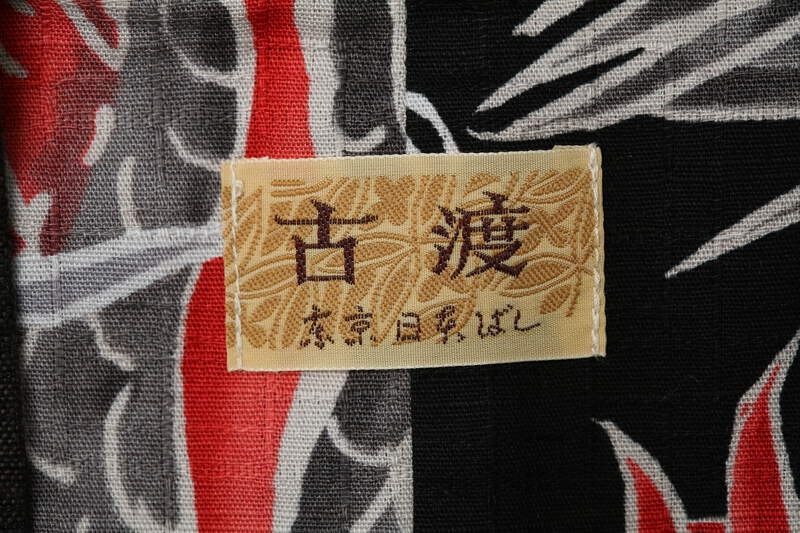 古渡
東京日本ばし